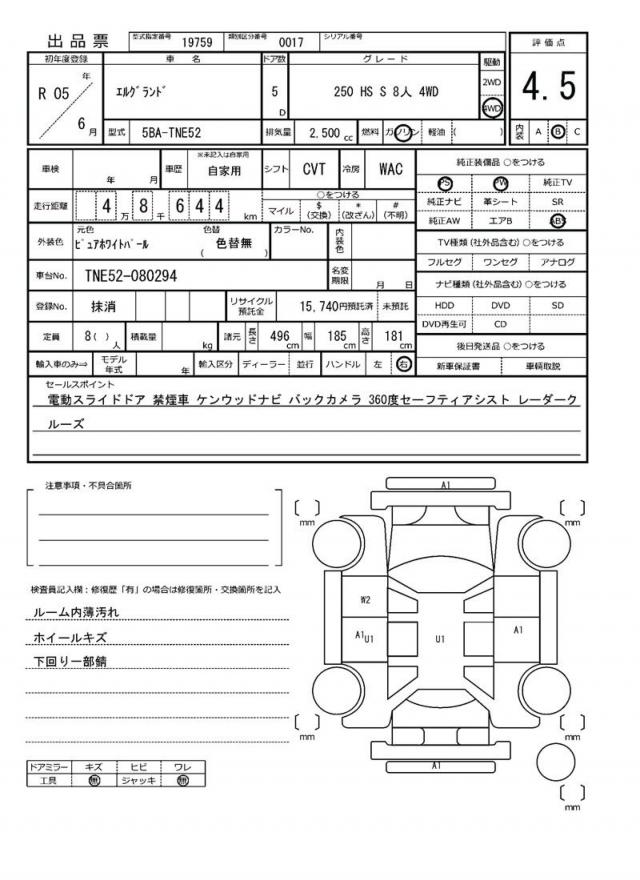 出品票 型式指定番号 19759 類別区分番号 0017 シリアル番号
初年度登録 車名 ドア数 グレード 駆動 評価点
R 05 年 6 月 エルグランド 5 D 250 HS S 8人 4WD 2WD 4WD 4.5
型式 5BA-TNE52 排気量 2,500 cc 燃料 ガソリン 軽油 ( ) 内装 A B C
車検 年 月 車歴 ※未記入は自家用 自家用 シフト CVT 冷房 WAC 純正装備品 ○をつける
PS PW 純正TV
走行距離 4 万 8 千 6 4 4 km ○をつける マイル $ (交換) * (改ざん) # (不明) 純正ナビ 革シート SR
純正AW エアB ABS
外装色 元色 ピュアホワイトパール 色替 ( 色替無 ) カラーNo. 内装色 TV種類 (社外品含む) ○をつける
フルセグ ワンセグ アナログ
車台No. TNE52-080294 名変期限 月 日 ナビ種類 (社外品含む) ○をつける
登録No. 抹消 リサイクル預託金 15,740円預託済 未預託 HDD DVD SD
DVD再生可 CD
定員 8( ) 人 積載量 kg 諸元 長さ 496 cm 幅 185 cm 高さ 181 cm 後日発送品 ○をつける
輸入車のみ⇒ モデル年式 年 輸入区分 ディーラー 並行 ハンドル 左 右 新車保証書 車輌取説
セールスポイント
電動スライドドア 禁煙車 ケンウッドナビ バックカメラ 360度セーフティアシスト レーダーク
ルーズ
注意事項・不具合箇所
検査員記入欄：修復歴「有」の場合は修復箇所・交換箇所を記入
ルーム内薄汚れ
ホイールキズ
下回り一部錆
ドアミラー キズ ヒビ ワレ
工具 無 ジャッキ 無
A1
mm mm
W2
A1 U1 U1 A1
mm mm
A1
mm